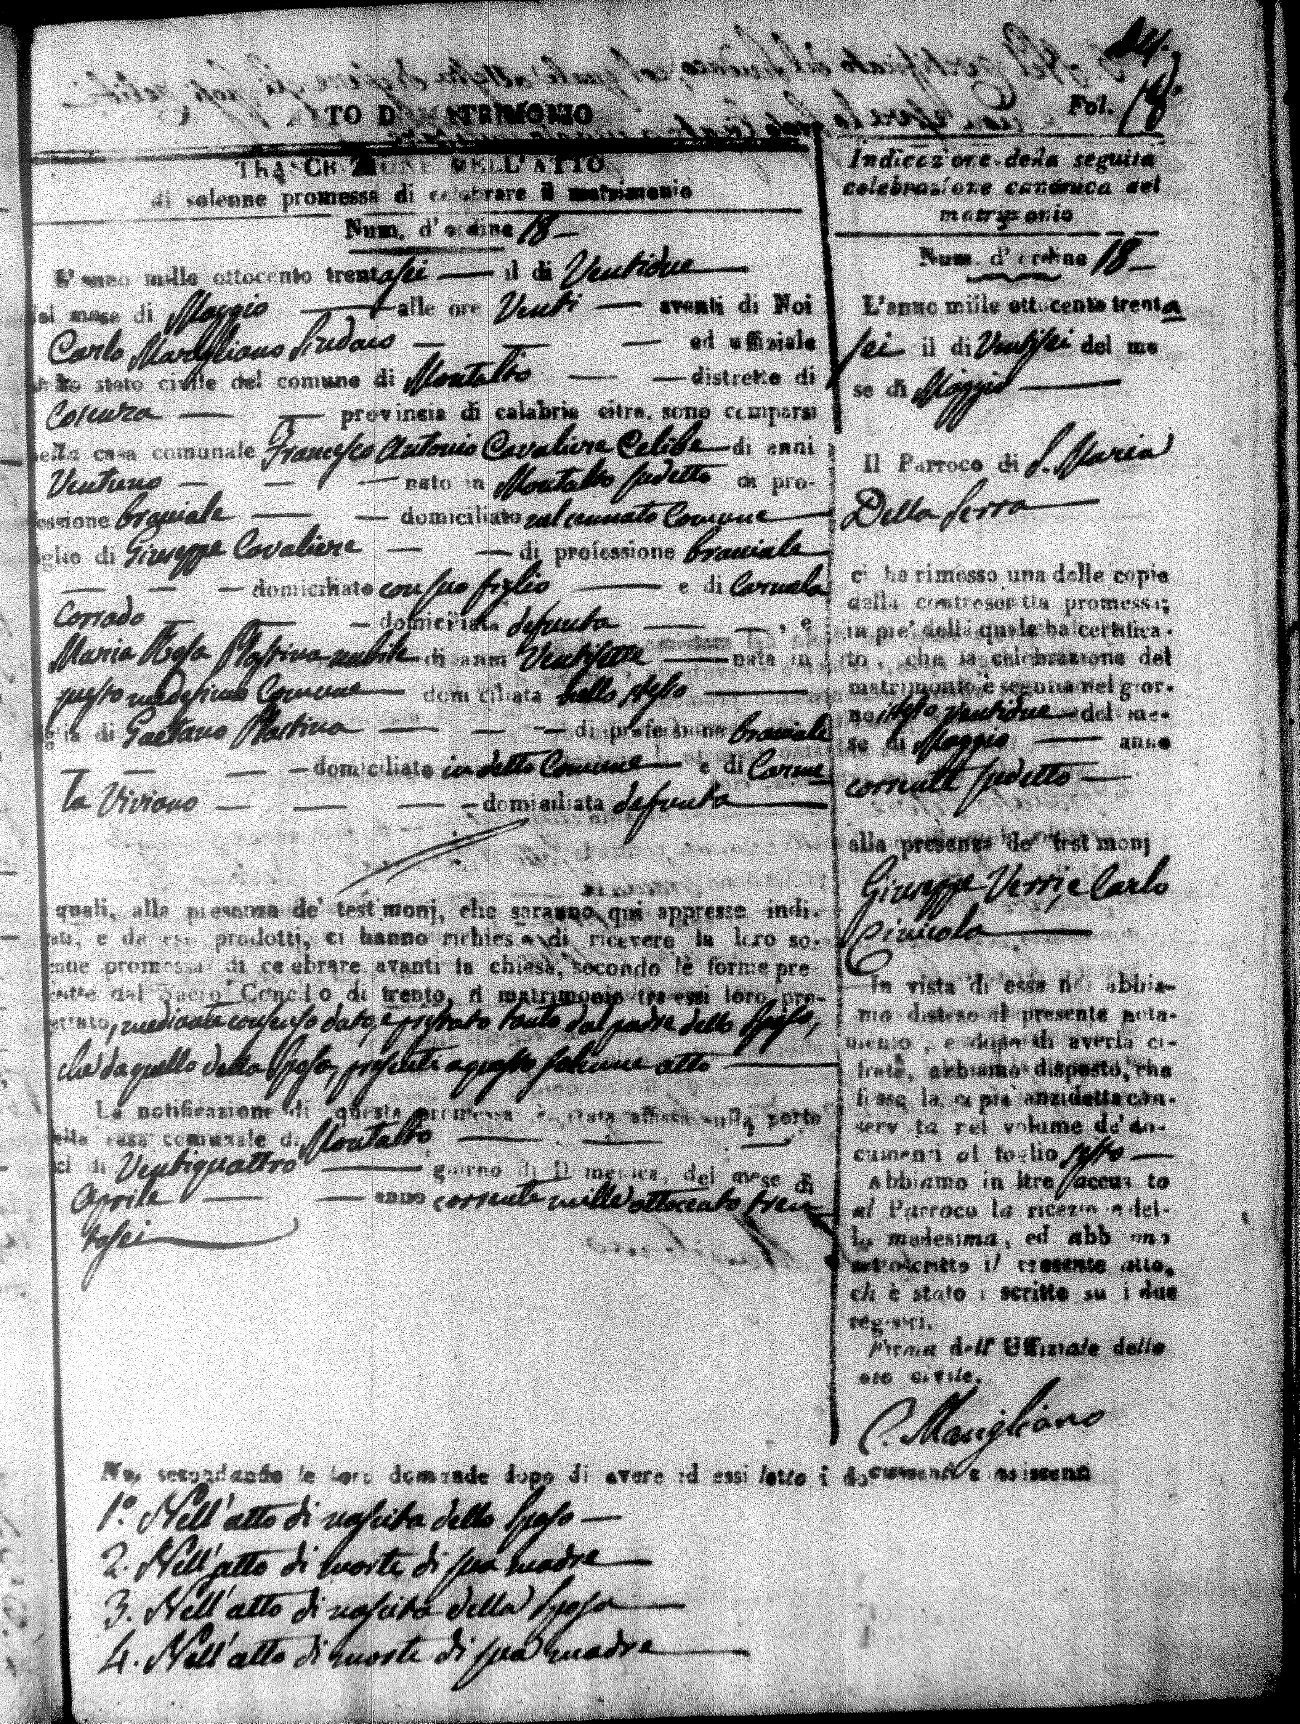 Fol. 18.
TO D MATRIMONIO
TRASCRIZIONE DELL'ATTO
di solenne promessa di celebrare il matrimonio
Num. d'ordine 18 —
L'anno mille ottocento trentasei — il di Ventidue —
del mese di Maggio — alle ore Venti — avanti di Noi
Carlo Sindaco — — — ed uffiziale
dello stato civile del comune di Montalto — — distretto di
Cosenza — — provincia di calabria citra, sono comparsi
nella casa comunale Francesco Antonio Cavaliere Celibe — di anni
Ventuno — — — nato in Montalto sudetto di pro-
fessione bracciale — — domiciliato nel cennato Comune —
figlio di Giuseppe Cavaliere — — di professione bracciale
— — — domiciliato con suo figlio — e di Carmela
Corrado — — — domiciliata defunta — —, e
Maria Rosa Plastina nubile di anni Ventisette — nata in
questo medesimo Comune — domiciliata nello stesso —
figlia di Gaetano Plastina — — — di professione bracciale
— — — — domiciliato in detto Comune — e di Carme
la Viviano — — — — domiciliata defunta —
quali, alla presenza de' testimonj, che saranno qui appresso indi-
cati, e da essi prodotti, ci hanno richiesto di ricevere la loro so-
lenne promessa di celebrare avanti la chiesa, secondo le forme pre
scritte dal Sacro Concilio di trento, il matrimonio tra essi loro pro-
gettato, mediante consenso dato, e prestato tanto dal padre dello Sposo,
che da quello della Sposa, presenti a questo solenne atto —
La notificazione di questa promessa è stata affissa sulla porta
della casa comunale di Montalto — — —
di Ventiquattro — giorno di Domenica, del mese di
Aprile — — anno corrente mille ottocento tren
tasei —
Indicazione della seguita
celebrazione canonica del
matrimonio
Num. d'ordine 18 —
L'anno mille ottocento trenta
sei il di Ventisei del me
se di Maggio —
Il Parroco di S. Maria
Della Serra —
ci ha rimesso una delle copie
della controscritta promessa;
in pie' della quale ha certifica-
to, che la celebrazione del
matrimonio è seguita nel gior-
no istesso ventidue — del me-
se di Maggio — anno
corrente sudetto —
alla presenza de' testimonj
Giuseppe Verri, e Carlo
—
In vista di essa noi abbia-
mo disteso il presente nota-
mento, e dopo di averla ci-
frata, abbiamo disposto, che
fosse la copia anzidetta con-
servata nel volume de' do-
cumenti al foglio sesto —
Abbiamo in ltre accusato
al Parroco la ricezione del-
la medesima, ed abbiamo
sottoscritto il presente atto,
ch è stato iscritto su i due
registri.
Firma dell'Uffiziale dello
stato civile.
C.
Noi secondando le loro domande dopo di avere ad essi letto i documenti e assistenti
1.º Nell'atto di nascita dello Sposo —
2. Nell'atto di morte di sua madre —
3. Nell'atto di nascita della Sposa —
4. Nell'atto di morte di sua madre —